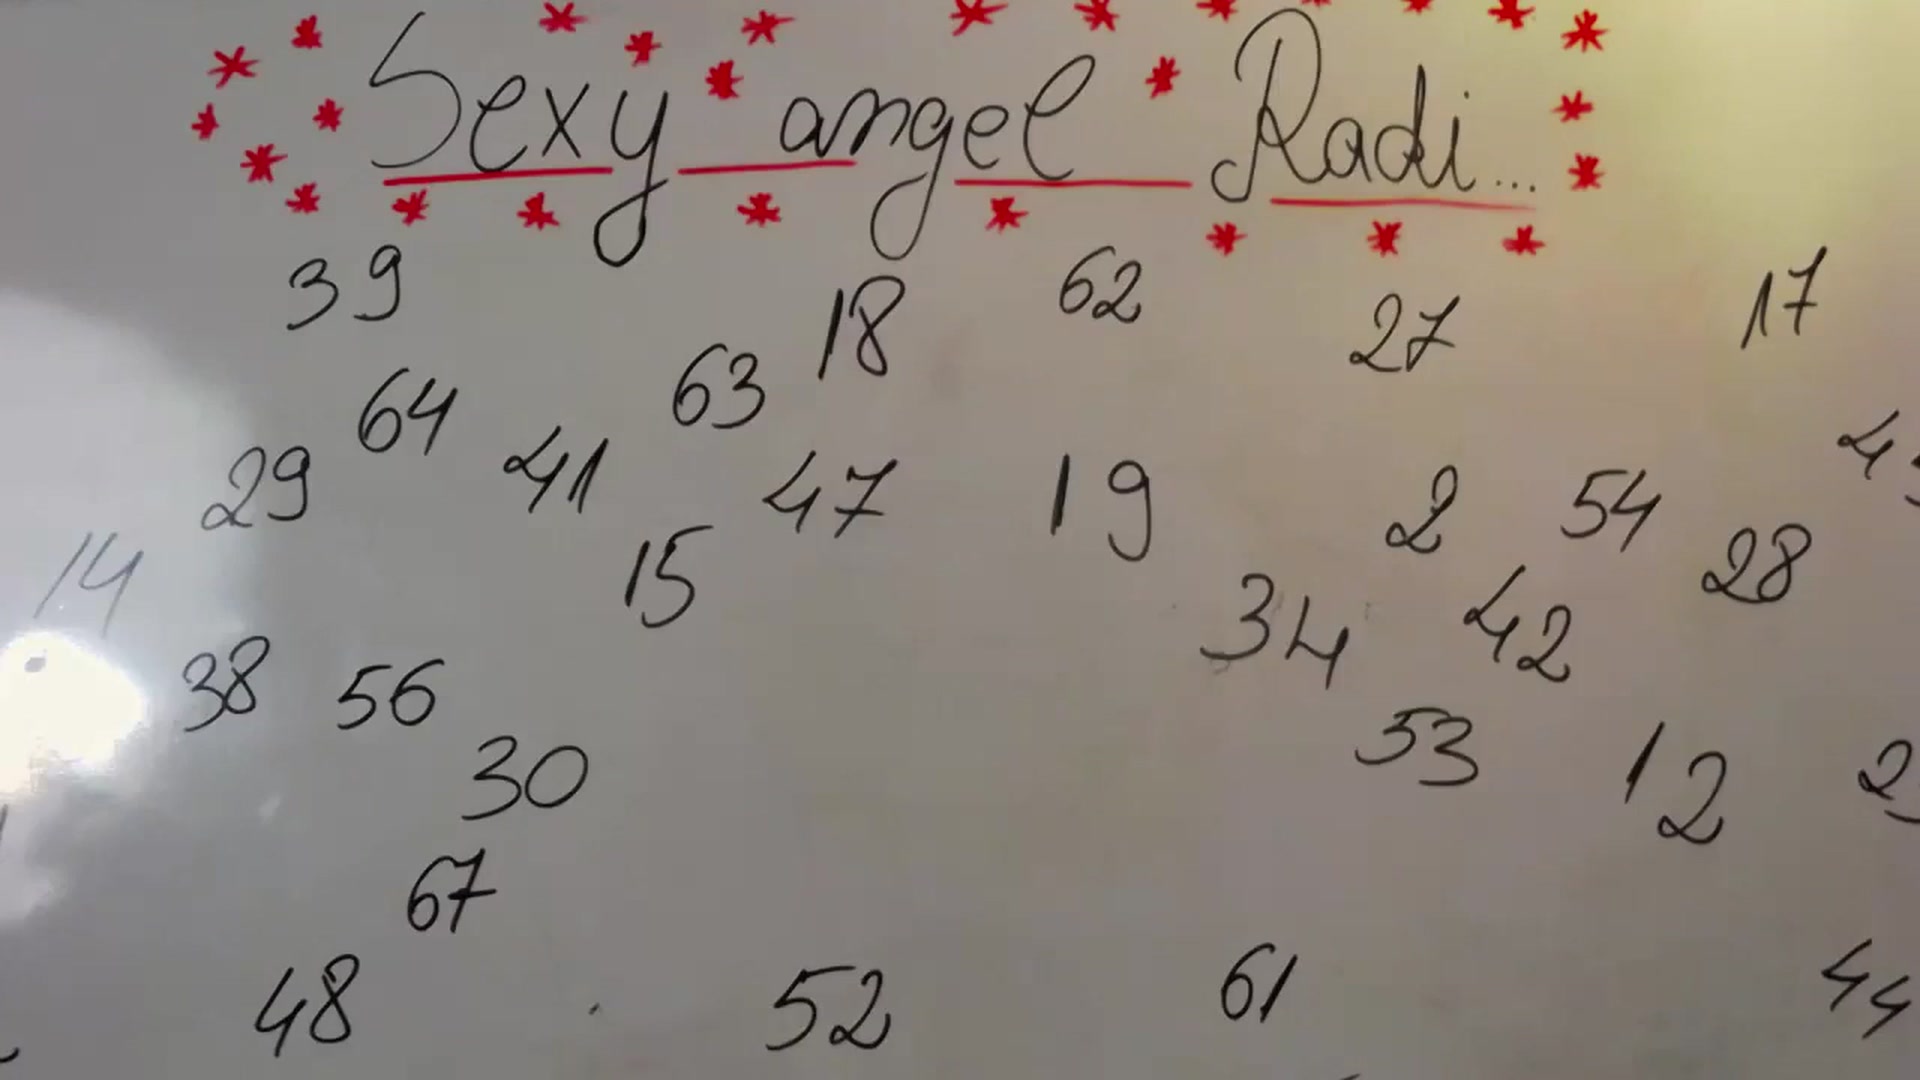 Sexy angel Radi...
39 18 62 27 17
64 63
29 41 47 19 2 54
14 15 34 42 28
38 56 53 12
30
67
48 52 61 44